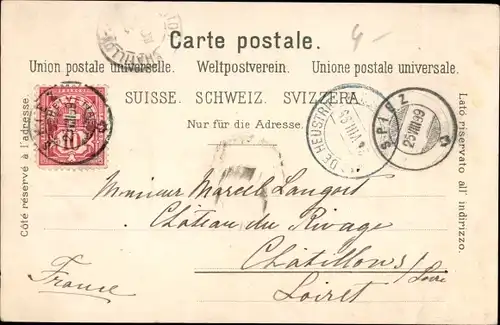 4-
Carte postale.
Union postale universelle. Weltpostverein. Unione postale universale.
SUISSE. SCHWEIZ. SVIZZERA.
Nur für die Adresse.
Côté réservé à l'adresse.
Lato riservato all' indirizzo.
10
SPIEZ
25 VIII 99
Monsieur Marcel Langoit
Château du Rivage
Châtillons/Loire
Loiret
France